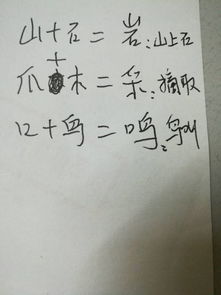 山+石=岩:山上石
爪+木=采:摘取
口+鸟=鸣:鸟叫